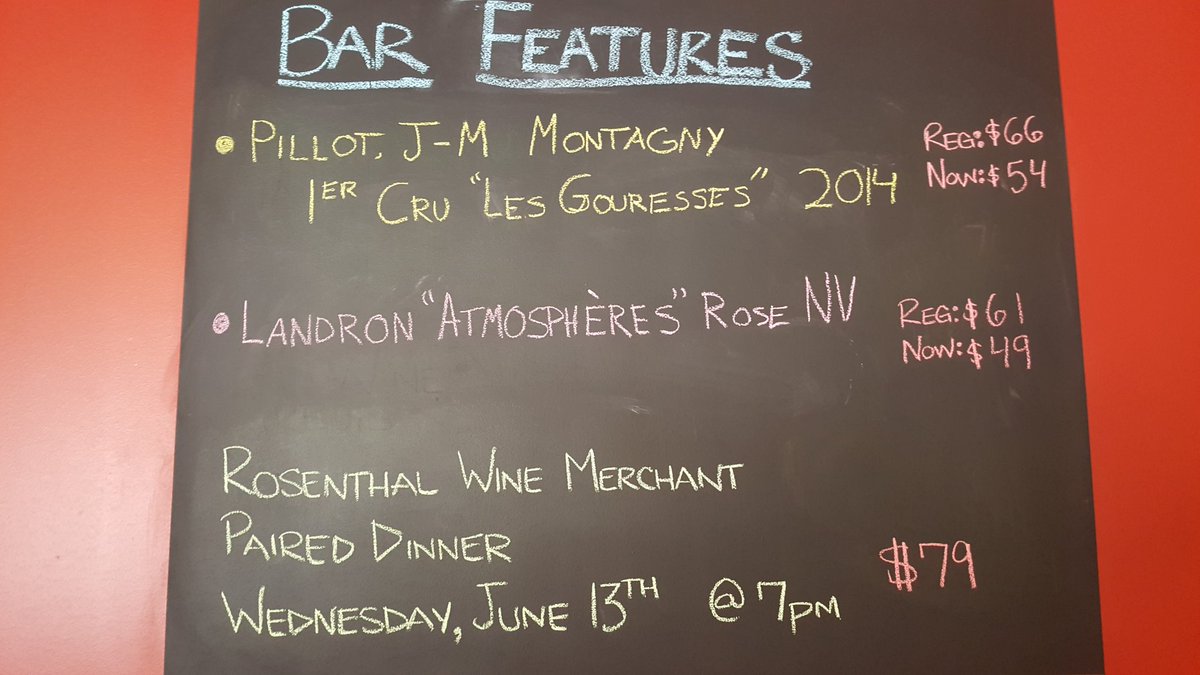 BAR FEATURES
• PILLOT, J-M MONTAGNY
1ER CRU "LES GOURESSES" 2014
REG: $66
NOW: $54
• LANDRON "ATMOSPHÈRES" ROSE NV
REG: $61
NOW: $49
ROSENTHAL WINE MERCHANT
PAIRED DINNER
WEDNESDAY, JUNE 13TH @ 7PM
$79